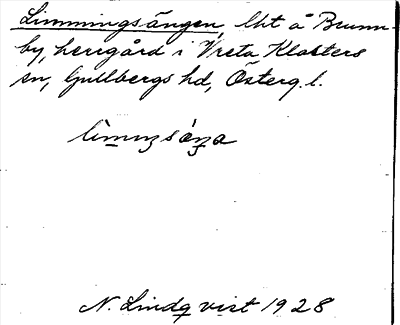 Limmingsängen, lht å Brunn-
by, herrgård i Vreta Klosters
sn, Gullbergs hd, Österg. l.
lìmıŋsǽŋa
N. Lindqvist 1928